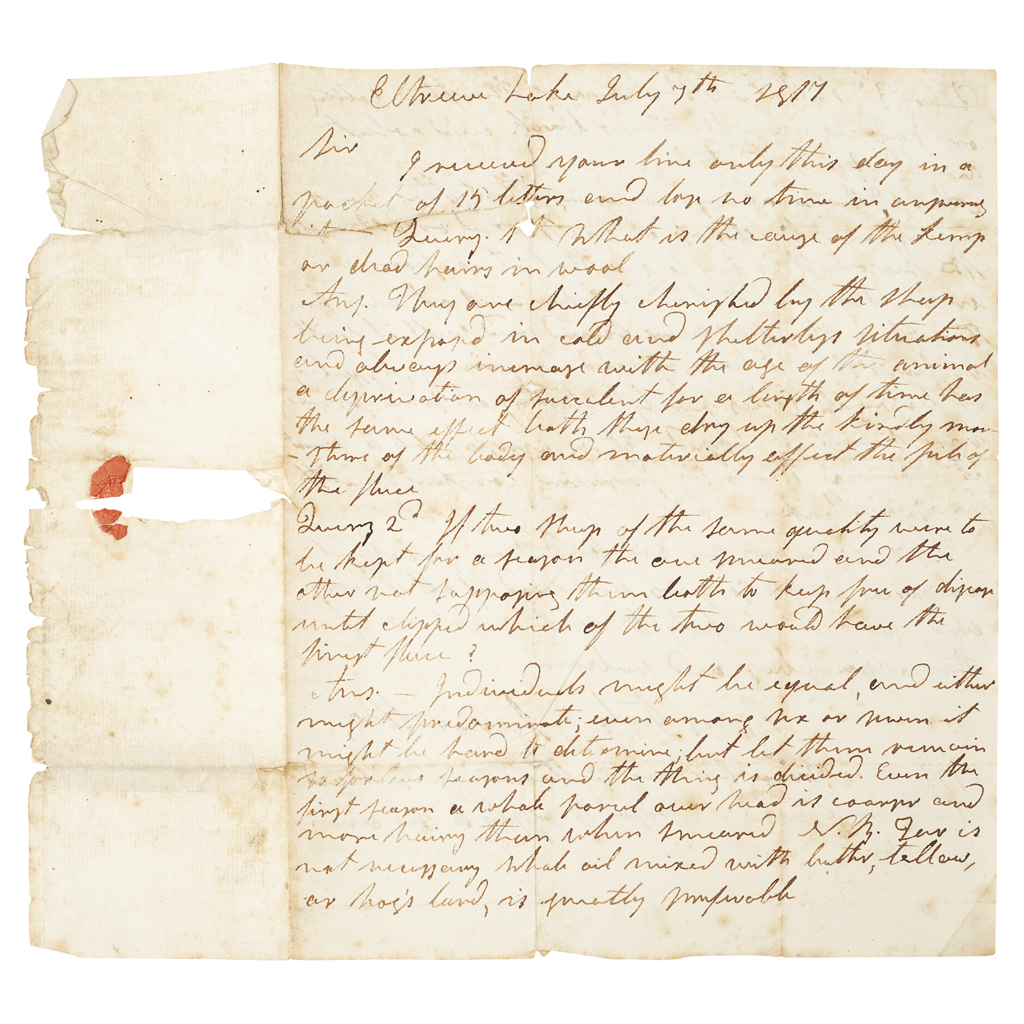 Eltrieve Lake July 7th 1817
Sir
I received your line only this day in a
packet of 15 letters and lose no time in answering
it — Query. 1st What is the cause of the kemp
or dead hairs in wool
Ans. They are chiefly cherished by the sheep
being exposed in cold and shelterless situations
and always increase with the age of the animal
a deprivation of succulent for a length of time has
the same effect both these dry up the kindly moi-
-sture of the body and materially affect the pile of
the fleece
Query 2d If two sheep of the same quality were to
be kept for a season the one smeared and the
other not supposing them both to keep free of disease
until clipped which of the two would have the
finest fleece?
Ans. — Individuals might be equal, and either
might predominate; even among six or seven it
might be hard to determine; but let them remain
so for seasons and the thing is decided. Even the
first season a whole parcel over head is coarser and
more hairy than when smeared N.B. Tar is
not necessary whale oil mixed with butter, tallow,
or hog's lard, is greatly preferable